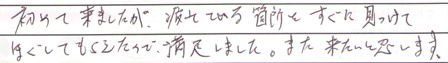 初めて来ましたが、疲れている箇所をすぐに見つけて
ほぐしてもらえたので、満足しました。また来たいと思います